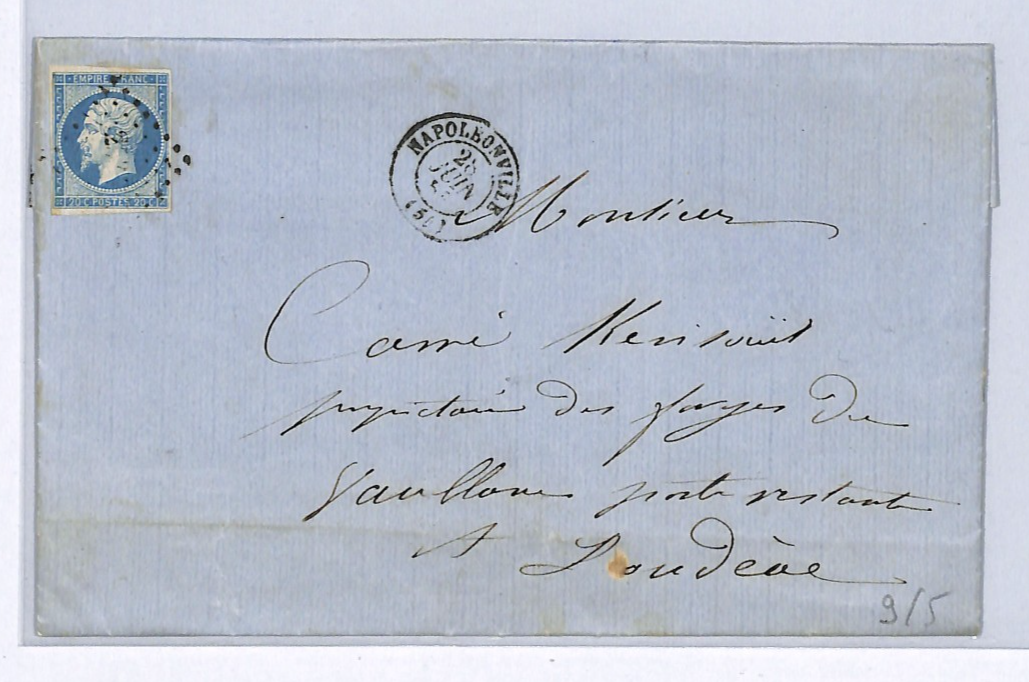 EMPIRE FRANC
20 C POSTES 20 C
NAPOLEONVILLE
28
JUIN
Monsieur
Carré Kerisouët
propriétaire des forges du
Vaublanc poste restante
A Loudéac
9/5